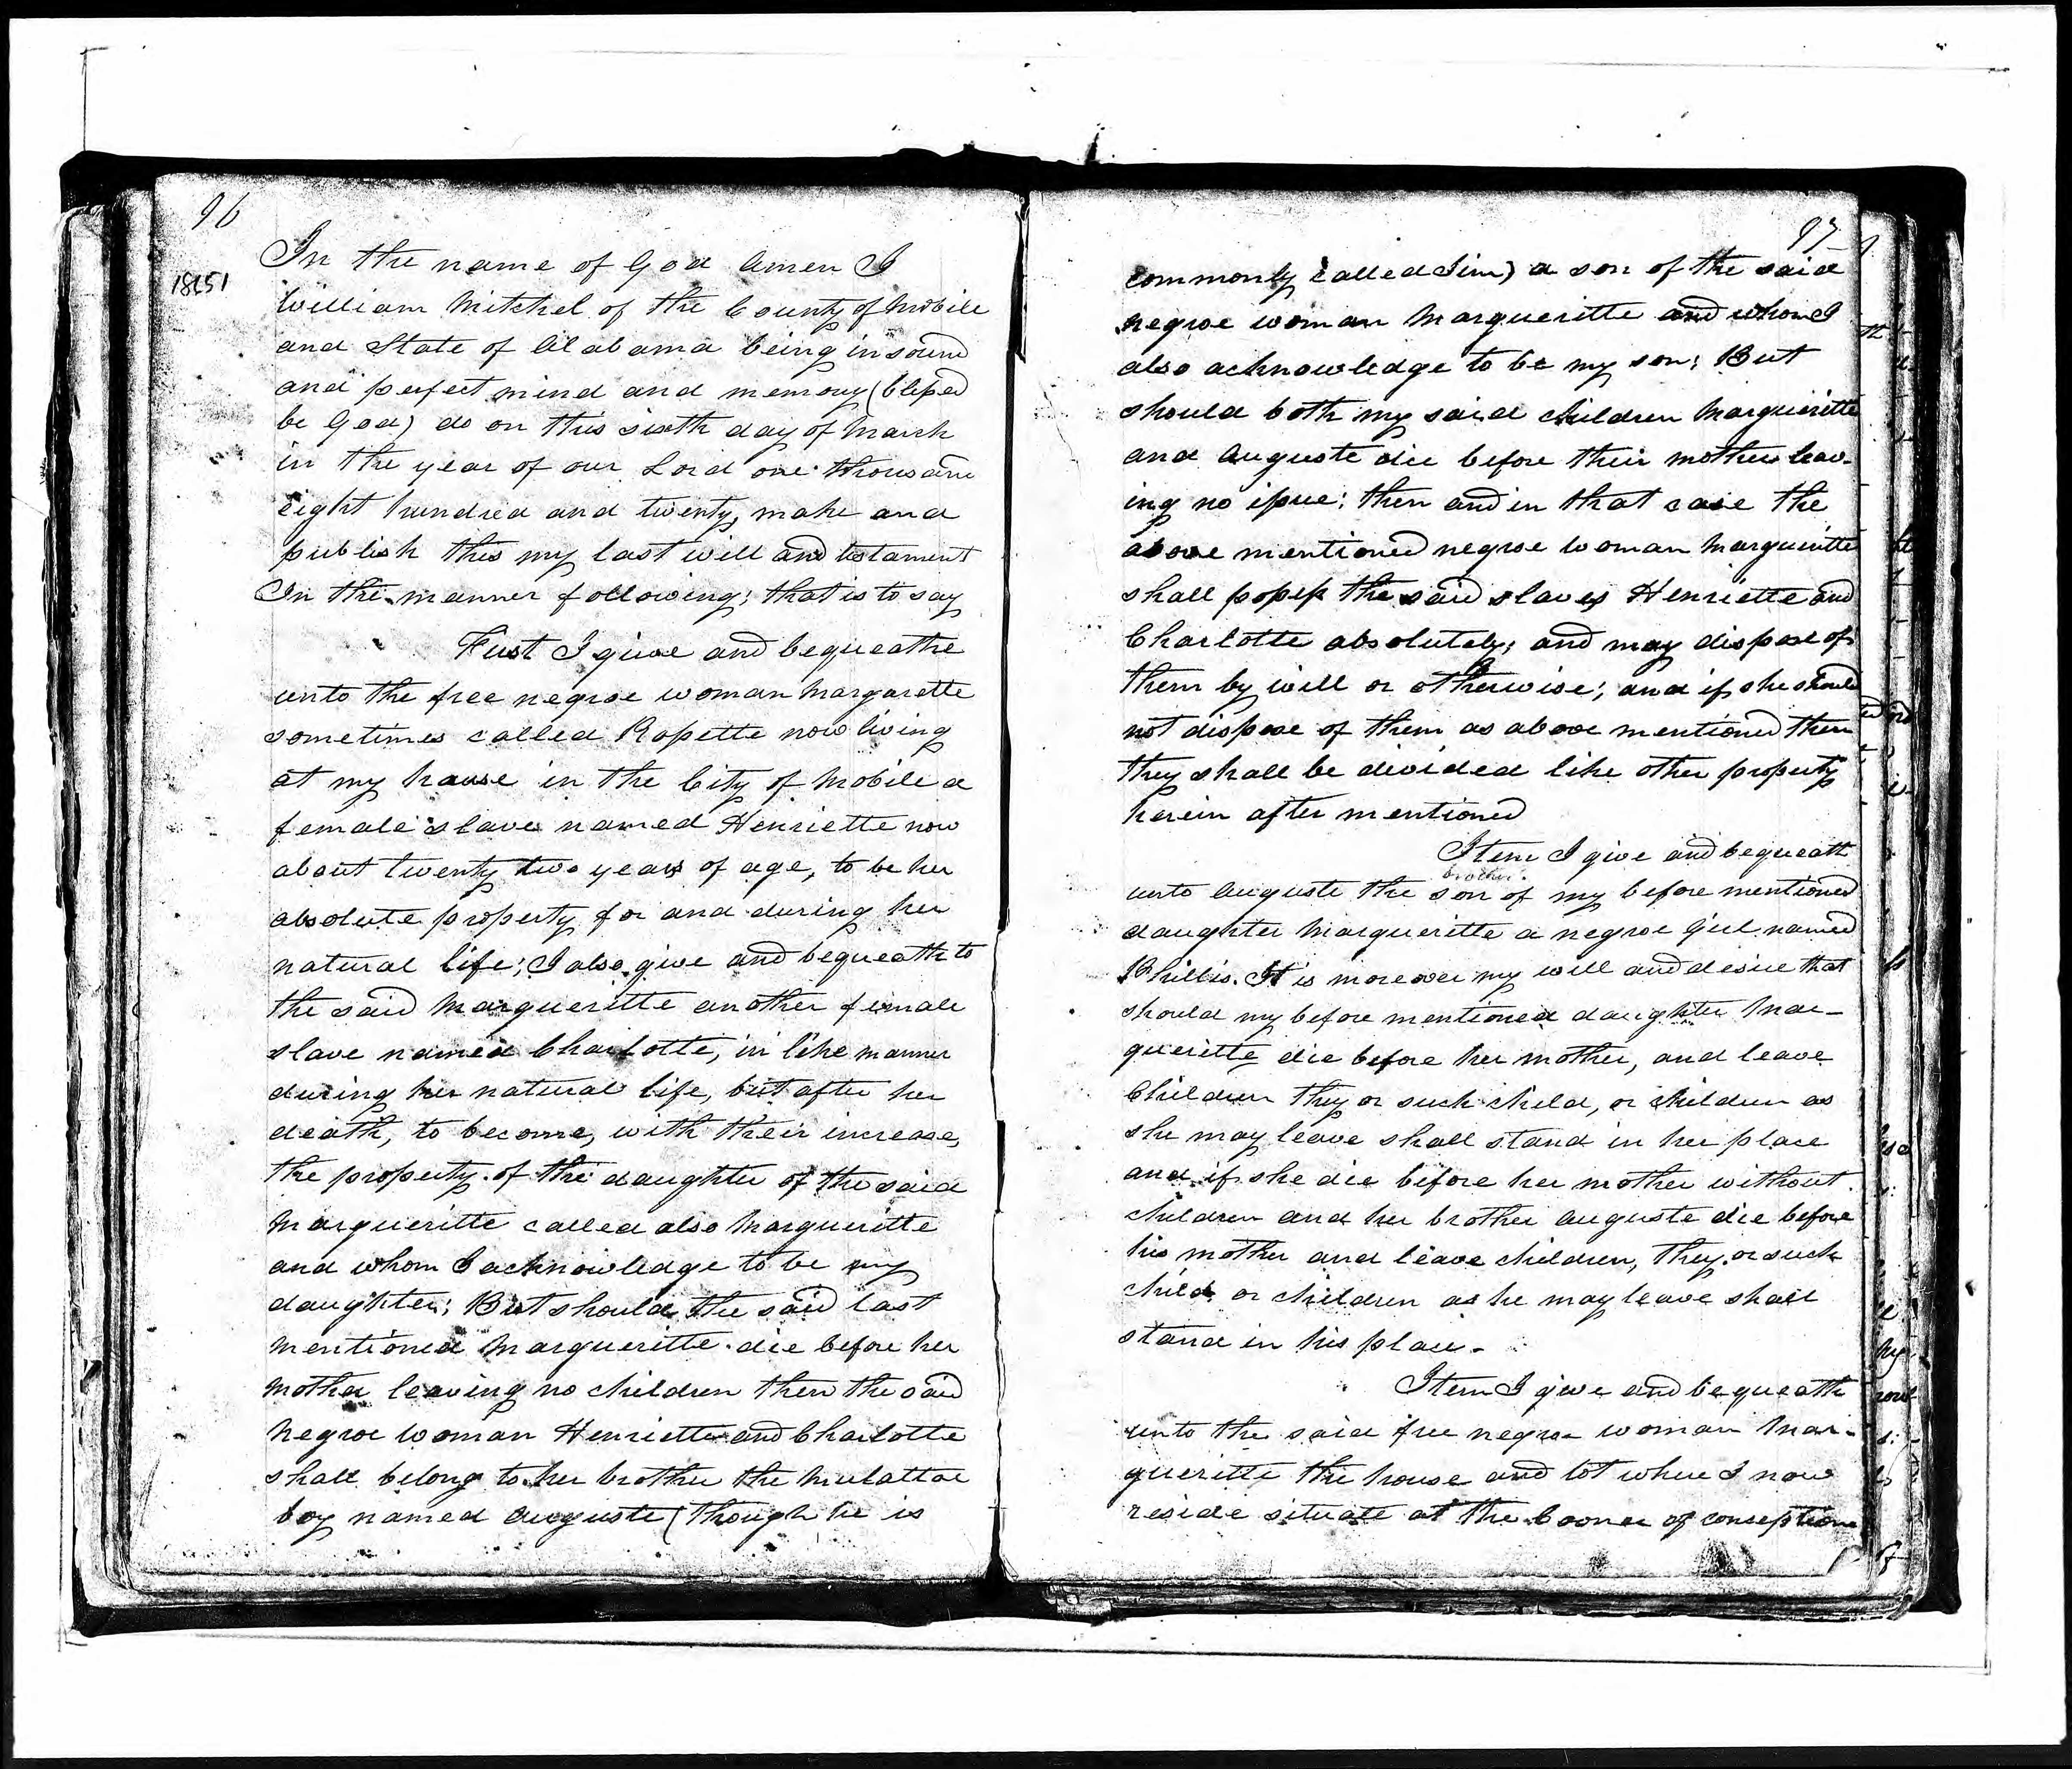 96
18151
In the name of God Amen I
William Mitchel of the County of Mobile
and State of Alabama being in sound
and perfect mind and memory (blessed
be God) do on this sixth day of March
in the year of our Lord one thousand
eight hundred and twenty, make and
publish this my last will and testament
In the manner following; that is to say
First I give and bequeathe
unto the free negroe woman Margarette
sometimes called Rosette now living
at my hause in the City of Mobile a
female slave named Henriette now
about twenty two years of age, to be her
absolute property for and during her
natural life; I also give and bequeath to
the said Margueritte another female
slave named Charlotte, in like manner
during her natural life, but after her
death, to become, with their increase,
the property of the daughter of the said
Margueritte called also Margueritte
and whom I acknowledge to be my
daughter; But should the said last
mentioned Margueritte die before her
mother leaving no children then the said
negroe woman Henriette and Charlotte
shall belong to her brother the Mulattoe
boy named Auguste (though he is
97
commonly called Jim) a son of the said
negroe woman Margueritte and whom I
also acknowledge to be my son; But
should both my said children Margueritte
and Auguste die before their mother leav-
ing no issue; then and in that case the
above mentioned negroe woman Margueritte
shall possess the said slaves Henriette and
Charlotte absolutely; and may dispose of
them by will or otherwise; and if she should
not dispose of them as above mentioned then
they shall be divided like other property
herein after mentioned
Item I give and bequeath
brother
unto Auguste the son of my before mentioned
daughter Margueritte a negroe Girl named
Phillis. It is moreover my will and desire that
should my before mentioned daughter Mar-
gueritte die before her mother, and leave
Children they or such child, or children as
she may leave shall stand in her place
and if she die before her mother without
children and her brother Auguste die before
his mother and leave children, they or such
child or children as he may leave shall
stand in his place.
Item I give and bequeath
unto the said free negroe woman Mar-
gueritte the house and lot where I now
reside situate at the Cooner of conseption